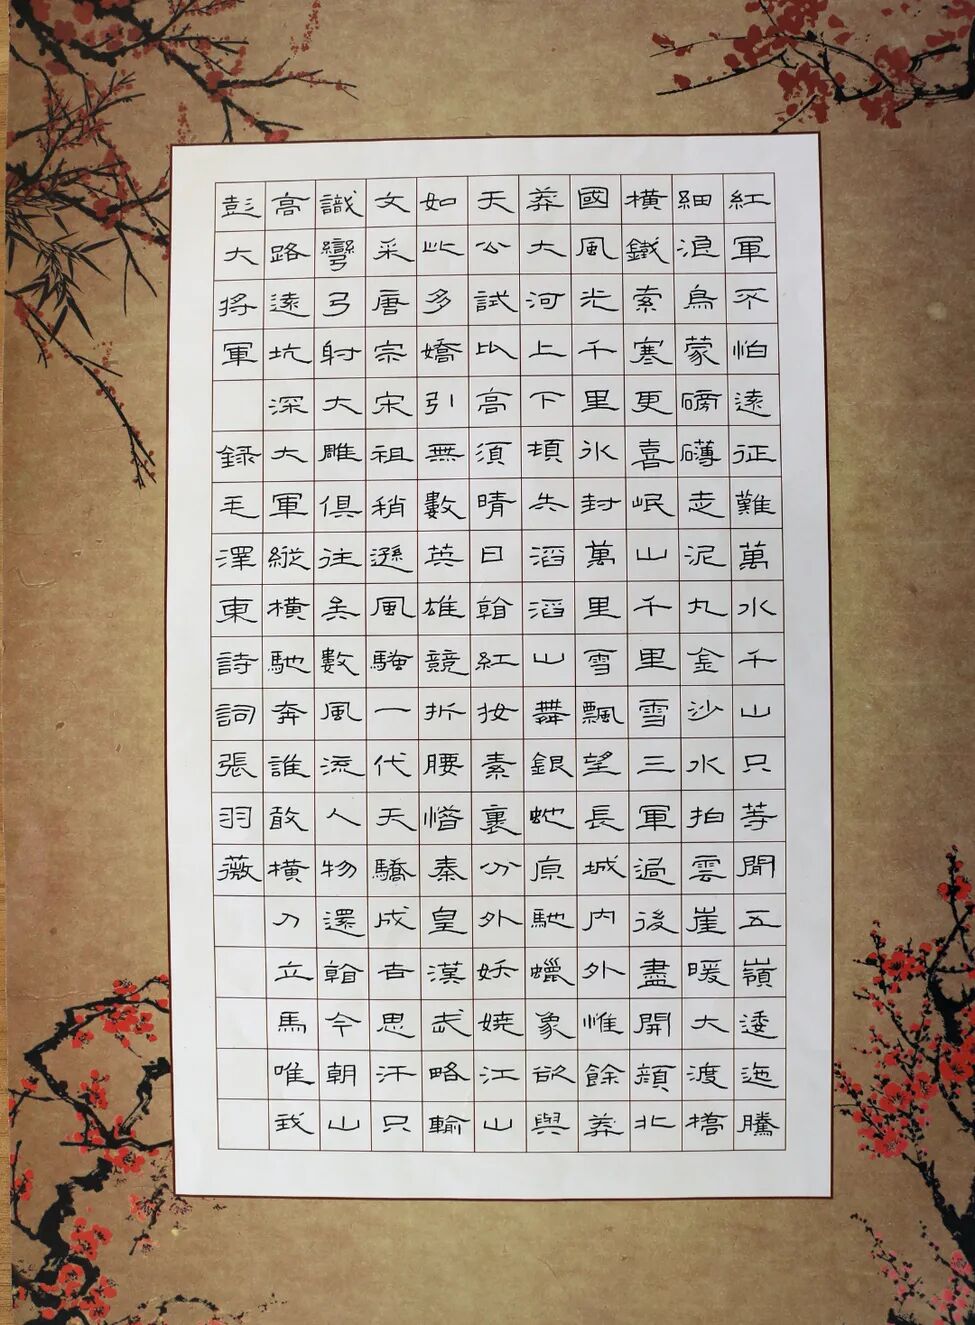 紅軍不怕遠征難萬水千山只等閒五嶺逶迤騰
細浪烏蒙磅礴走泥丸金沙水拍雲崖暖大渡橋
橫鐵索寒更喜岷山千里雪三軍過後盡開顏北
國風光千里冰封萬里雪飄望長城內外惟餘莽
莽大河上下頓失滔滔山舞銀蛇原馳蠟象欲與
天公試比高須晴日看紅妝素裹分外妖嬈江山
如此多嬌引無數英雄競折腰惜秦皇漢武略輸
文采唐宗宋祖稍遜風騷一代天驕成吉思汗只
識彎弓射大雕俱往矣數風流人物還看今朝山
高路遠坑深大軍縱橫馳奔誰敢橫刀立馬唯我
彭大將軍 録毛澤東詩詞張羽薇